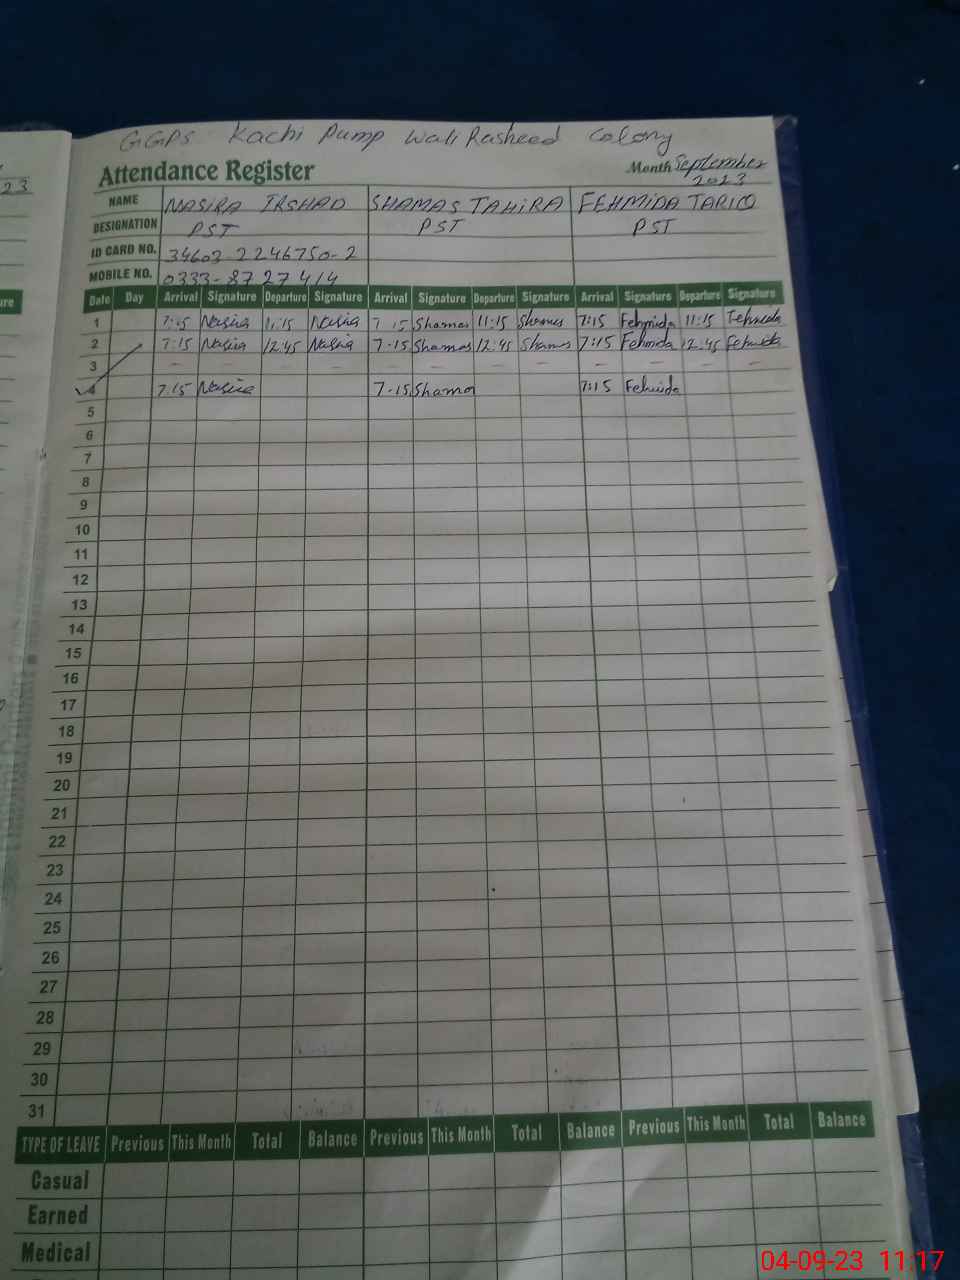 GGPS Kachi Pump Wali Rasheed Colony
23
Attendance Register Month September 2023
NAME NASIRA IRSHAD SHAMAS TAHIRA FEHMIDA TARIQ
DESIGNATION PST PST PST
ID CARD NO. 34603-2246750-2
MOBILE NO. 0333-8727414
ure
Date Day Arrival Signature Departure Signature Arrival Signature Departure Signature Arrival Signature Departure Signature
1 7:15 Nasira 11:15 Nasira 7:15 Shamas 11:15 Shamas 7:15 Fehmida 11:15 Fehmida
2 7:15 Nasira 12:45 Nasira 7:15 Shamas 12:45 Shamas 7:15 Fehmida 12:45 Fehmida
3 – – – – – – – – – – – –
4 7:15 Nasira 7:15 Shamas 7:15 Fehmida
5
6
7
8
9
10
11
12
13
14
15
16
17
18
19
20
21
22
23
24
25
26
27
28
29
30
31
TYPE OF LEAVE Previous This Month Total Balance Previous This Month Total Balance Previous This Month Total Balance
Casual
Earned
Medical
04-09-23 11:17